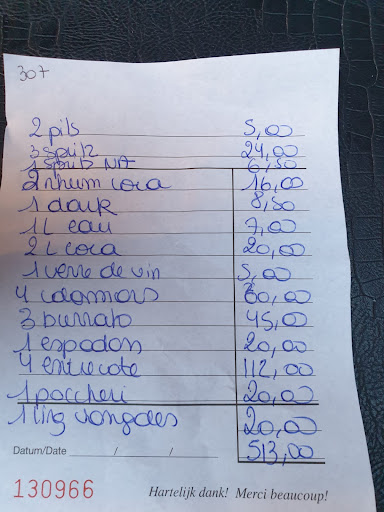 307
2 pils 5,00
3 spritz 24,00
1 spritz NA 6,50
2 rhum coca 16,00
1 dark 8,50
1 L eau 7,00
2 L coca 20,00
1 verre de vin 5,00
4 calamars 60,00
3 burrata 45,00
1 espadon 20,00
4 entrecote 112,00
1 paccheri 20,00
1 ling vongoles 20,00
513,00
Datum/Date / / 
130966 Hartelijk dank! Merci beaucoup!